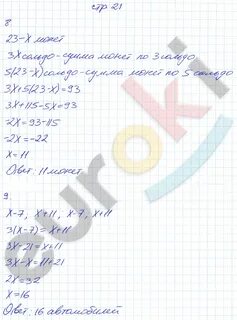 стр 21
8.
23-x монет
3x сольдо-сумма монет по 3 сольдо
5(23-x) сольдо-сумма монет по 5 сольдо
3x+5(23-x)=93
3x+115-5x=93
-2x=93-115
-2x=-22
x=11
Ответ: 11 монет
9.
x-7, x+11, x-7, x+11
3(x-7)=x+11
3x-21=x+11
3x-x=11+21
2x=32
x=16
Ответ: 16 автомобилей
euroki